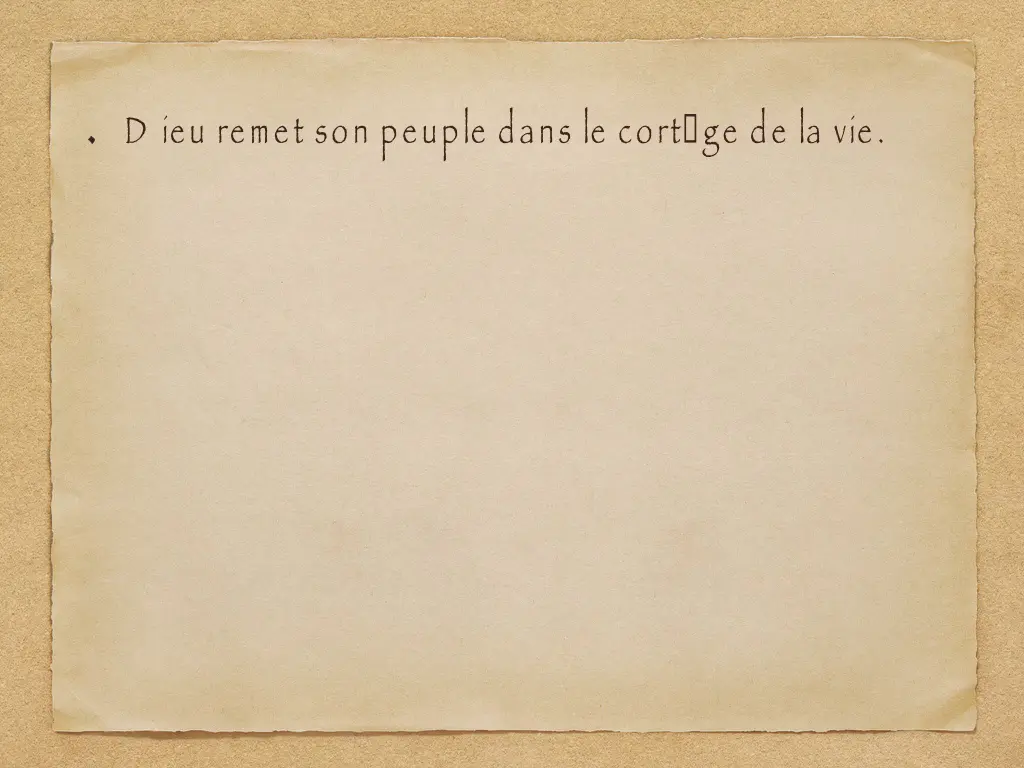 • Dieu remet son peuple dans le cort▯ge de la vie.